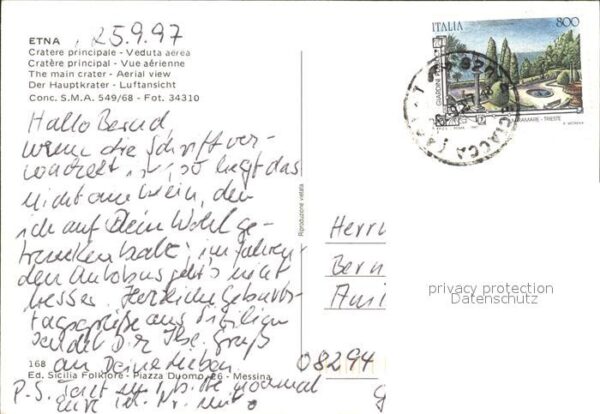 ETNA
25.9.97
Cratere principale - Veduta aerea
Cratère principal - Vue aérienne
The main crater - Aerial view
Der Hauptkrater - Luftansicht
Conc. S.M.A. 549/68 - Fot. 34310
Hallo Bernd
wenn die Schrift ver-
wackelt ist, so liegt das
nicht am Wein, den
ich auf Dein Wohl ge-
trunken habe; im fahren-
den Autobus geht's nicht
besser. Herzliche Geburts-
tagsgrüße aus Sizilien
sendet Dir Ilse. Gruß
an Deine Lieben.
168
Ed. Sicilia Folklore - Piazza Duomo, 26 - Messina
P.S. mir bitte nochmal
Eure Tel. Nr. mit
Riproduzione vietata
ITALIA
800
GIARDINI
MIRAMARE - TRIESTE
SCIACCA
Herrn
Bern
08294
privacy protection
Datenschutz